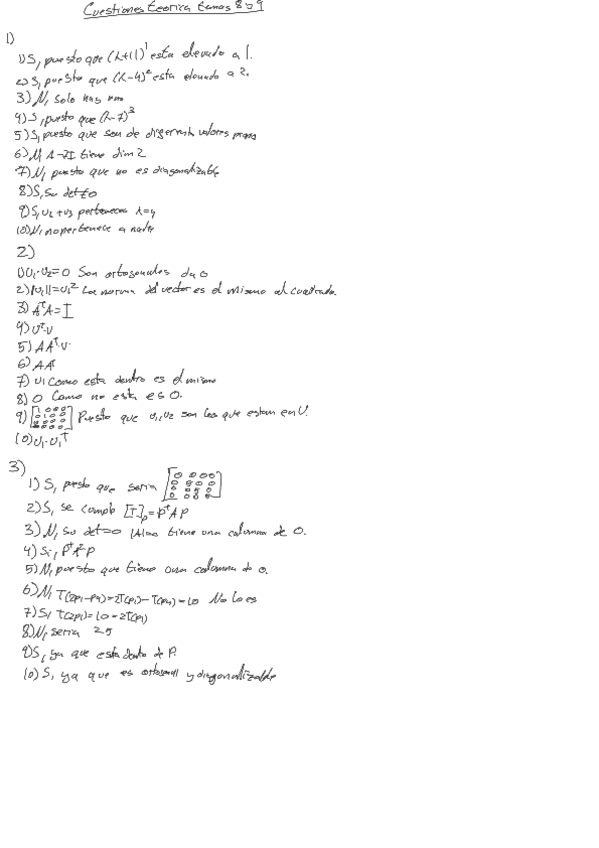 Cuestiones teorica temas 8 y 9
1)
1) S, puesto que (λ+1)^1 esta elevado a 1.
2) S, puesto que (λ-4)^2 esta elevado a 2.
3) N, solo hay
4) S, puesto que (λ-7)^3
5) S, puesto que son de diferente valores propios
6) N, A-7I tiene dim 2
7) N, puesto que no es diagonalizable
8) S, su det≠0
9) S, v2 + v3 pertenecen λ=4
10) N, no pertenece a nada
2)
1) v1·v2=0 Son ortogonales da 0
2) ||v1||=v1^2 La norma del vector es el mismo al cuadrado.
3) A^tA=I
4) U^t·v
5) AA^t·v
6) AA^t
7) v1 Como esta dentro es el mismo
8) 0 Como no esta es 0.
9) Puesto que v1,v2 son los que estan en U.
10) v1·v1^T
3)
1) S, puesto que seria
2) S, se cumple [T]p=P^tAP
3) N, su det=0 tiene una columna de 0.
4) Si, P^tA^2P
5) N, puesto que tiene una columna de 0.
6) N, T(2p1-p4)=2T(p1)-T(p4)=10 No lo es
7) S, T(2p1)=10=2T(p1)
8) N, seria 25
9) S, ya que esta dento de P.
10) S, ya que es ortogonal y diagonalizable